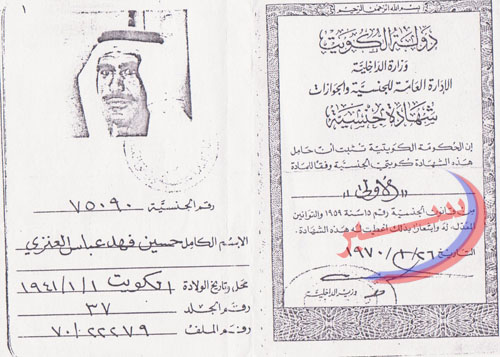 بسم الله الرحمن الرحيم
دولة الكويت
وزارة الداخلية
الإدارة العامة للجنسية والجوازات
شهادة جنسية
إن الحكومة الكويتية تثبت أن حامل
هذه الشهادة كويتي الجنسية وفقا للمادة
"الأولى"
من قانون الجنسية رقم ١٥ سنة ١٩٥٩ والقوانين
المعدلة له وإشعارا بذلك أعطيت له هذه الشهادة .
التاريخ ١٩٧٠/٢/٢٦
وزير الداخلية
١
رقم الجنسية ٧٥٠٩٠
الإسم الكامل حسين فهد عباس العنزي
محل وتاريخ الولادة الكويت ١٩٤١/١/١
رقم الجلد ٣٧
رقم الملف ٧٠/٢٢٢٧٩